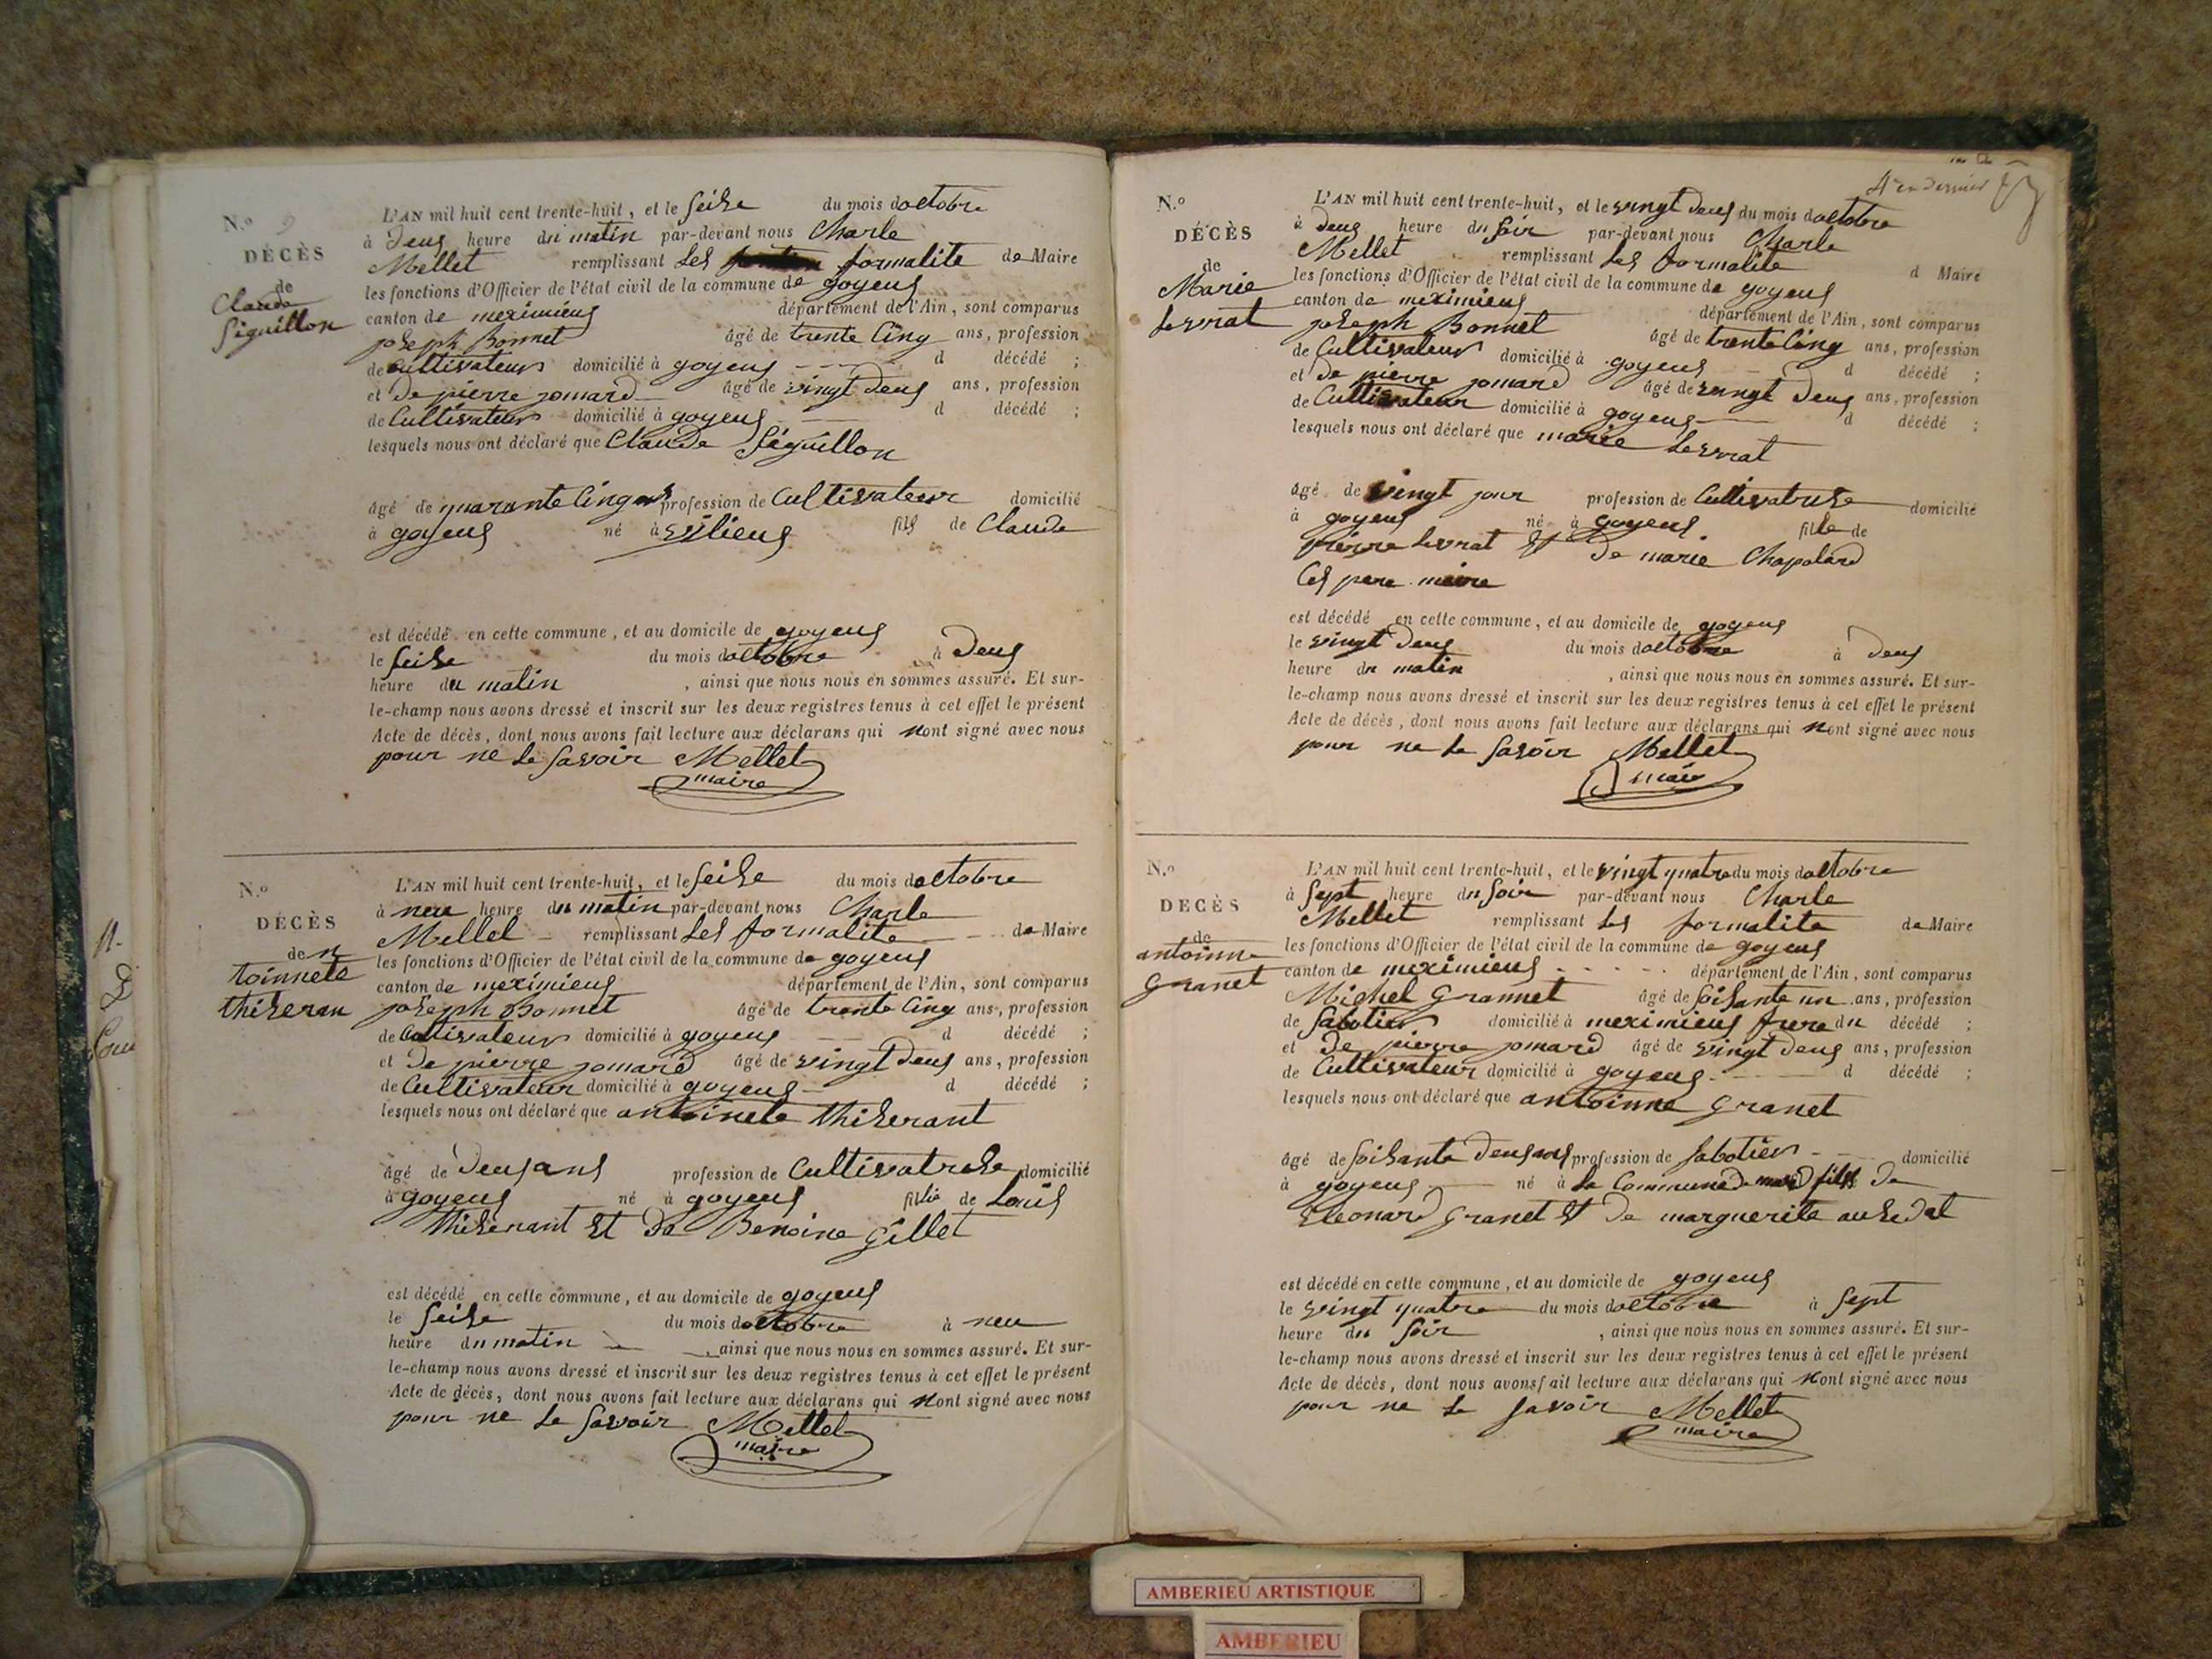 N.o 9
DÉCÈS
de
Claude
Siguillon
L'AN mil huit cent trente-huit, et le seise du mois doctobre
à deus heure du matin par-devant nous Charle
Mellet remplissant les formalite de Maire
les fonctions d'Officier de l'état civil de la commune de goyeus
canton de meximieus département de l'Ain, sont comparus
joseph Bonnet âgé de trente cinq ans, profession
de Cultivateur domicilié à goyeus d décédé ;
et De pierre jomard âgé de vingt deus ans, profession
de Cultivateur domicilié à goyeus d décédé ;
lesquels nous ont déclaré que Claude Siguillon
âgé de quarante cinq ans profession de Cultivateur domicilié
à goyeus né à vilieus fils de Claude
est décédé en cette commune, et au domicile de goyeus
le seise du mois doctobre à deus
heure du matin , ainsi que nous nous en sommes assuré. Et sur-
le-champ nous avons dressé et inscrit sur les deux registres tenus à cet effet le présent
Acte de décès, dont nous avons fait lecture aux déclarans qui nont signé avec nous
pour ne le savoir Mellet
maire
N.o
DÉCÈS
de n
toinnete
thiseran
L'AN mil huit cent trente-huit, et le seise du mois doctobre
à neu heure du matin par-devant nous Charle
Mellet remplissant les formalite de Maire
les fonctions d'Officier de l'état civil de la commune de goyeus
canton de meximieus département de l'Ain, sont comparus
joseph Bonnet âgé de trente cinq ans, profession
de Cultivateur domicilié à goyeus d décédé ;
et De pierre jomard âgé de vingt deus ans, profession
de Cultivateur domicilié à goyeus d décédé ;
lesquels nous ont déclaré que antoinete thiserant
âgé de deus ans profession de Cultivatrise domicilié
à goyeus né à goyeus fille de Louis
thiserant et De Benoine gillet
est décédé en cette commune, et au domicile de goyeus
le seise du mois doctobre à neu
heure du matin , ainsi que nous nous en sommes assuré. Et sur-
le-champ nous avons dressé et inscrit sur les deux registres tenus à cet effet le présent
Acte de décès, dont nous avons fait lecture aux déclarans qui nont signé avec nous
pour ne le savoir Mellet
maire
4e en dernier
N.o
DÉCÈS
de
Marie
Levrat
L'AN mil huit cent trente-huit, et le vingt deus du mois doctobre
à deus heure du soir par-devant nous Charle
Mellet remplissant les formalite d Maire
les fonctions d'Officier de l'état civil de la commune de goyeus
canton de meximieus département de l'Ain, sont comparus
joseph Bonnet âgé de trente cinq ans, profession
de Cultivateur domicilié à goyeus d décédé ;
et De pierre jomard âgé de vingt deus ans, profession
de Cultivateur domicilié à goyeus d décédé ;
lesquels nous ont déclaré que marie Levrat
âgé de vingt jour profession de Cultivatrise domicilié
à goyeus né à goyeus fille de
pierre Levrat et De marie Chapolard
Ces pere meire
est décédé en cette commune, et au domicile de goyeus
le vingt deus du mois doctobre à deus
heure du matin , ainsi que nous nous en sommes assuré. Et sur-
le-champ nous avons dressé et inscrit sur les deux registres tenus à cet effet le présent
Acte de décès, dont nous avons fait lecture aux déclarans qui nont signé avec nous
pour ne le savoir Mellet
maire
N.o
DECÈS
de
antoinne
granet
L'AN mil huit cent trente-huit, et le vingt quatre du mois doctobre
à sept heure du soir par-devant nous Charle
Mellet remplissant les formalite de Maire
les fonctions d'Officier de l'état civil de la commune de goyeus
canton de meximieus département de l'Ain, sont comparus
Michel grannet âgé de soisante un ans, profession
de sabotier domicilié à meximieus frere du décédé ;
et De pierre jomard âgé de vingt deus ans, profession
de Cultivateur domicilié à goyeus d décédé ;
lesquels nous ont déclaré que antoinne granet
âgé de soisante deus ans profession de sabotier domicilié
à goyeus né à la Commune de fils De
Eleonard granet et De marguerite ausedat
est décédé en cette commune, et au domicile de goyeus
le vingt quatre du mois doctobre à sept
heure du soir , ainsi que nous nous en sommes assuré. Et sur-
le-champ nous avons dressé et inscrit sur les deux registres tenus à cet effet le présent
Acte de décès, dont nous avons fait lecture aux déclarans qui nont signé avec nous
pour ne le savoir Mellet
maire
AMBERIEU ARTISTIQUE
AMBERIEU